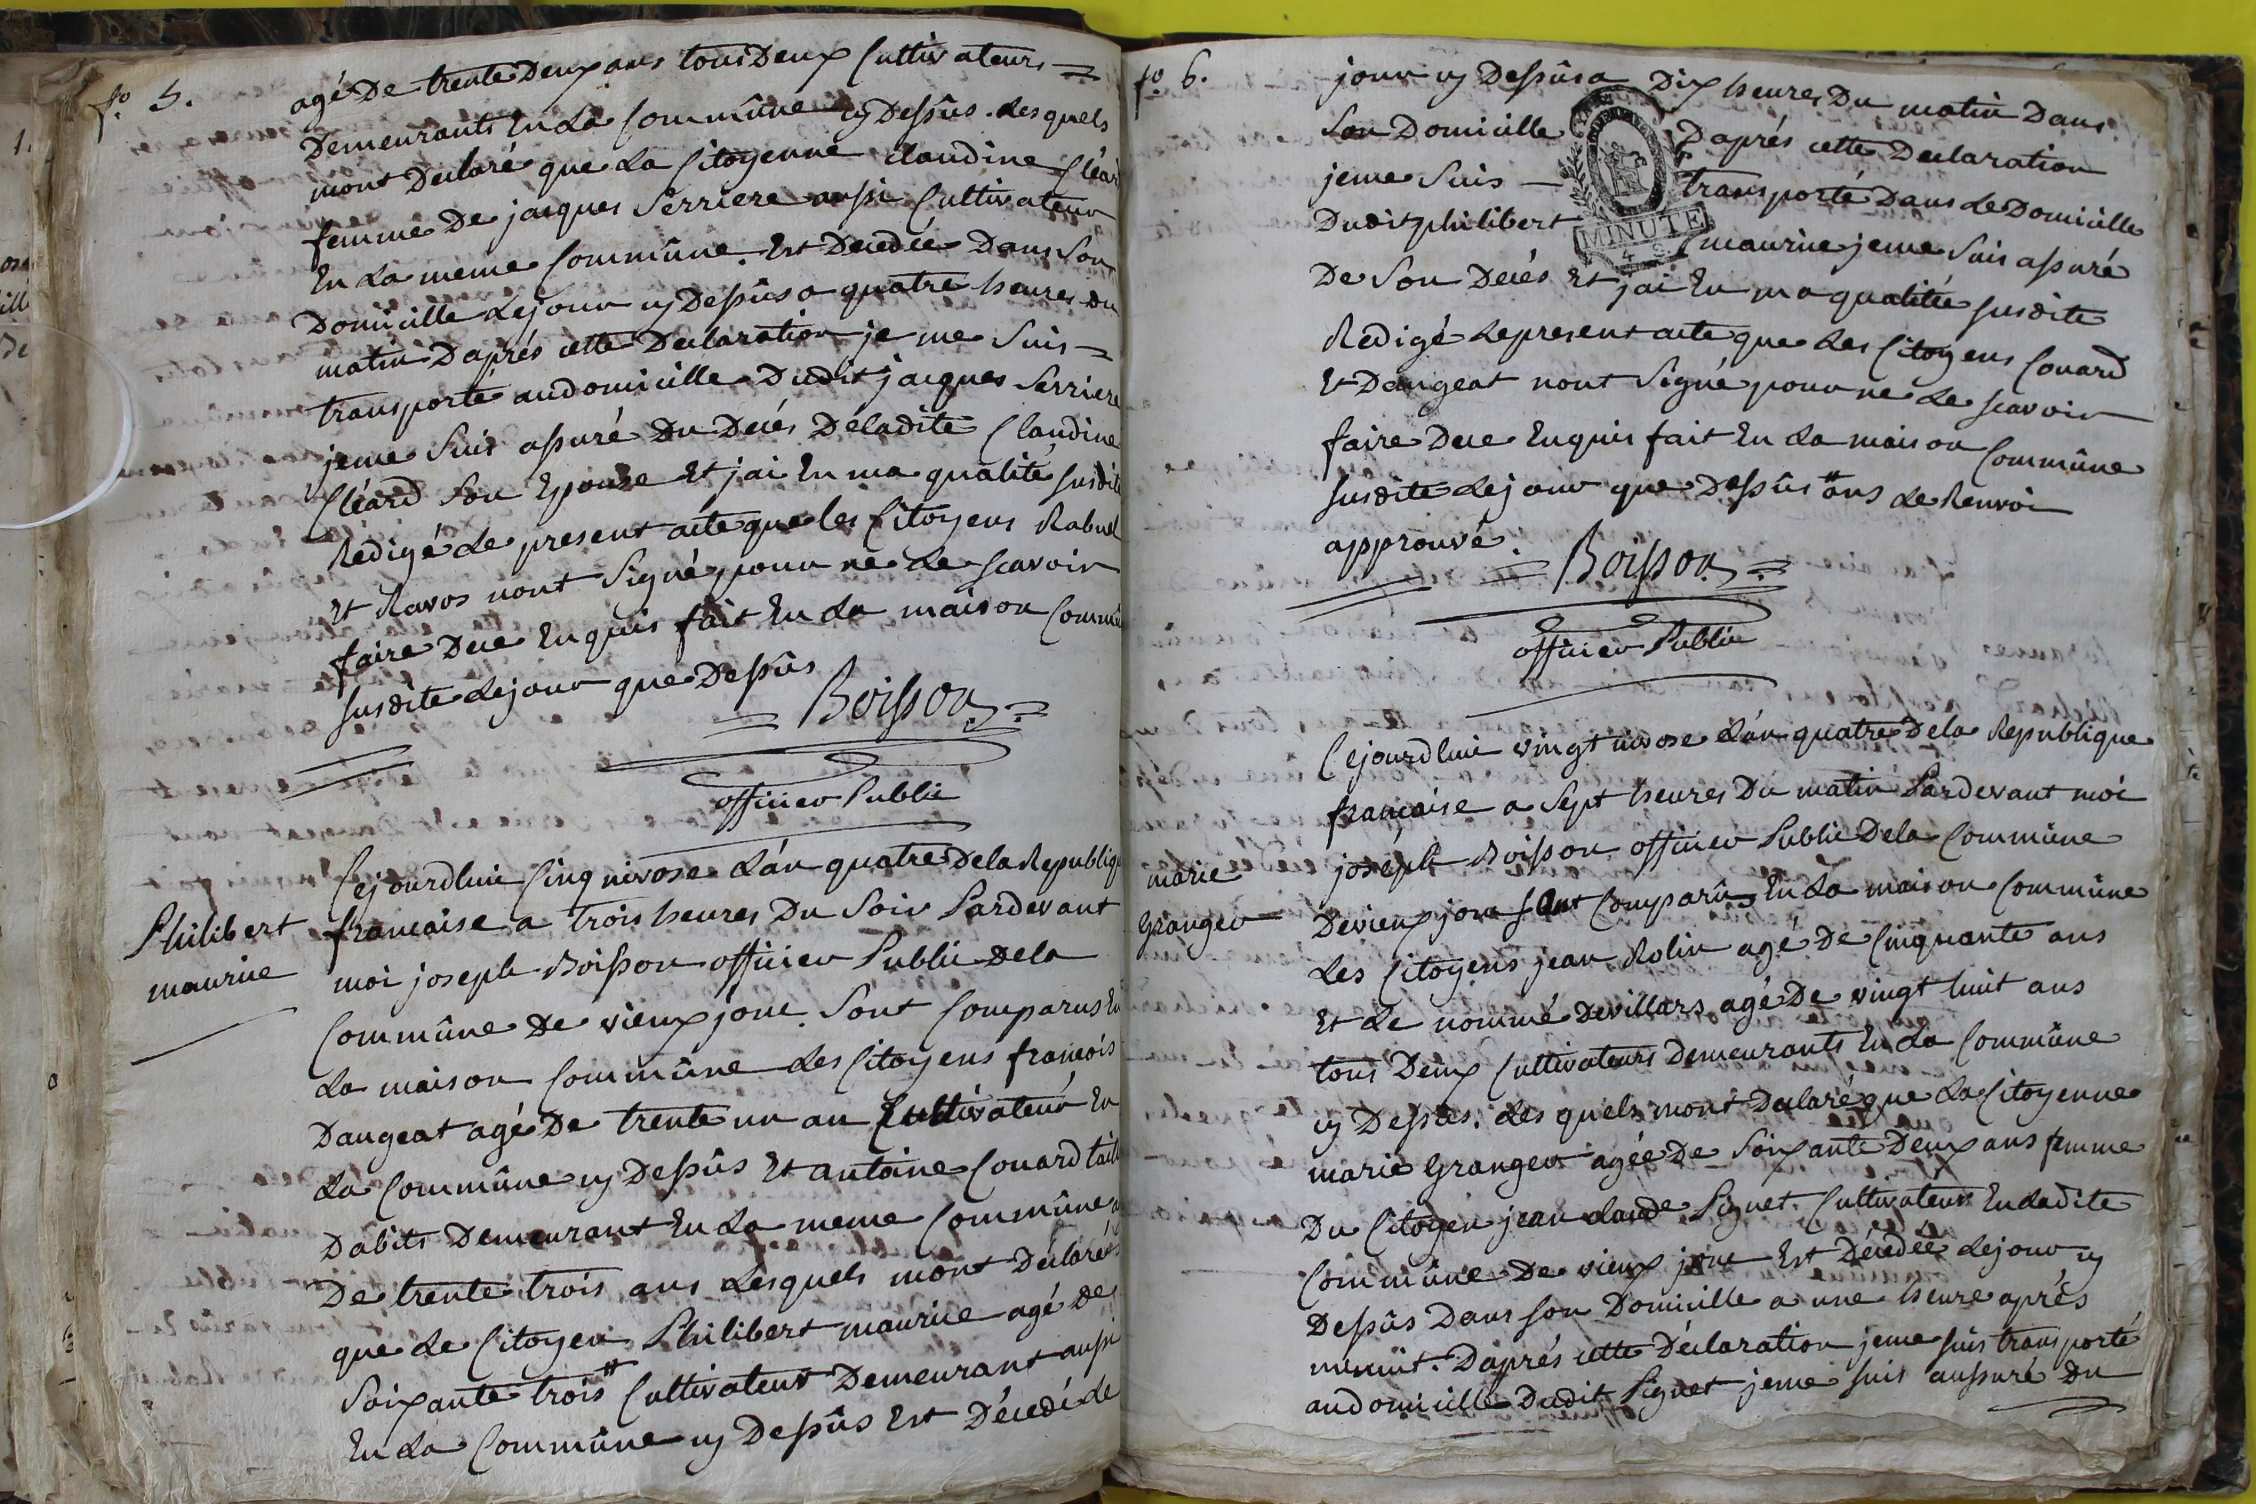 fo 5.
agé De trente Deux ans tous Deux Cultivateurs
Demeurants En La Commûne cy Dessûs. Lesquels
mont Declaré que La Citoyenne claudine Cléard
femme De jacques Serriere aussi Cultivateur
En La meme Commûne. Est Decedée Dans Son
Domicille Lejour cy Dessûs a quatre heures du
matin Daprés cette Declaration je me Suis
transporté audomicille Dudit jacques Serriere
jeme Suis assuré Du Decés Deladite Claudine
Cléard Son Epouse Et jai En ma qualité susdite
Redigé Le present acte que les Citoyens Rabuel
Et Ravos nont Signé pour ne Le scavoir
faire Dece Enquis fait En La maison Commûne
susdite Lejour que Dessûs
Boisson
officier Public
Philibert
maurice
Cejourdhui Cinq nivose Lán quatre Dela Republique
francaise a trois heures Du Soir Pardevant
moi joseph Boisson officier Public Dela
Commûne De vieux jour Sont Comparus En
La maison Commûne Les Citoyens francois
Daugeat agé De trente un an Cultivateur En
La Commûne cy Dessûs Et antoine Couard taill
Dabits Demeurant En La meme Commûne
De trente trois ans Lesquels mont Declarés
que Le Citoyen Philibert maurice agé De
Soixante trois # Cultivateur Demeurant aussi
En La Commûne cy Dessûs Est Décedé Le
fo 6.
jour cy Dessûs a Dix heures Du matin Dans
Son Domicille Daprés cette Declaration
jeme Suis transporté Dans Le Domicille
Dudit philibert maurice jeme Suis assuré
MINUTE
De Son Decés Et jai En ma qualitée susdite
Redigé Lepresent acte que Les Citoyens Couard
Et Daugeat nont Signé pour ne Le scavoir
faire Dece Enquis fait En La maison Commûne
susdite Lejour que Dessûs # ans Le Renvoi
approuvé.
Boisson
officier Public
marie
Granger
Cejourdhui vingt nivose Lán quatre Dela Republique
francaise a Sept heures Du matin Pardevant moi
joseph Boisson officier Public Dela Commûne
Devieux jour sont Comparûs En La maison Commûne
Les Citoyens jean Rolin agé De Cinquante ans
Et Le nommé Devillars agé De vingt huit ans
tous Deux Cultivateurs Demeurants En La Commûne
cy Dessûs. Lesquels mont Declaré que La Citoyenne
marie Granger agée De Soixante Deux ans femme
Du Citoyen jean claude Signet. Cultivateur En Ladite
Commûne De vieux jour Est Décedée Lejour cy
Dessûs Dans son Domicille a une heure aprés
minuit. Daprés cette Déclaration jeme suis transporté
audomicille Dudit Signet jeme suis aussuré Du